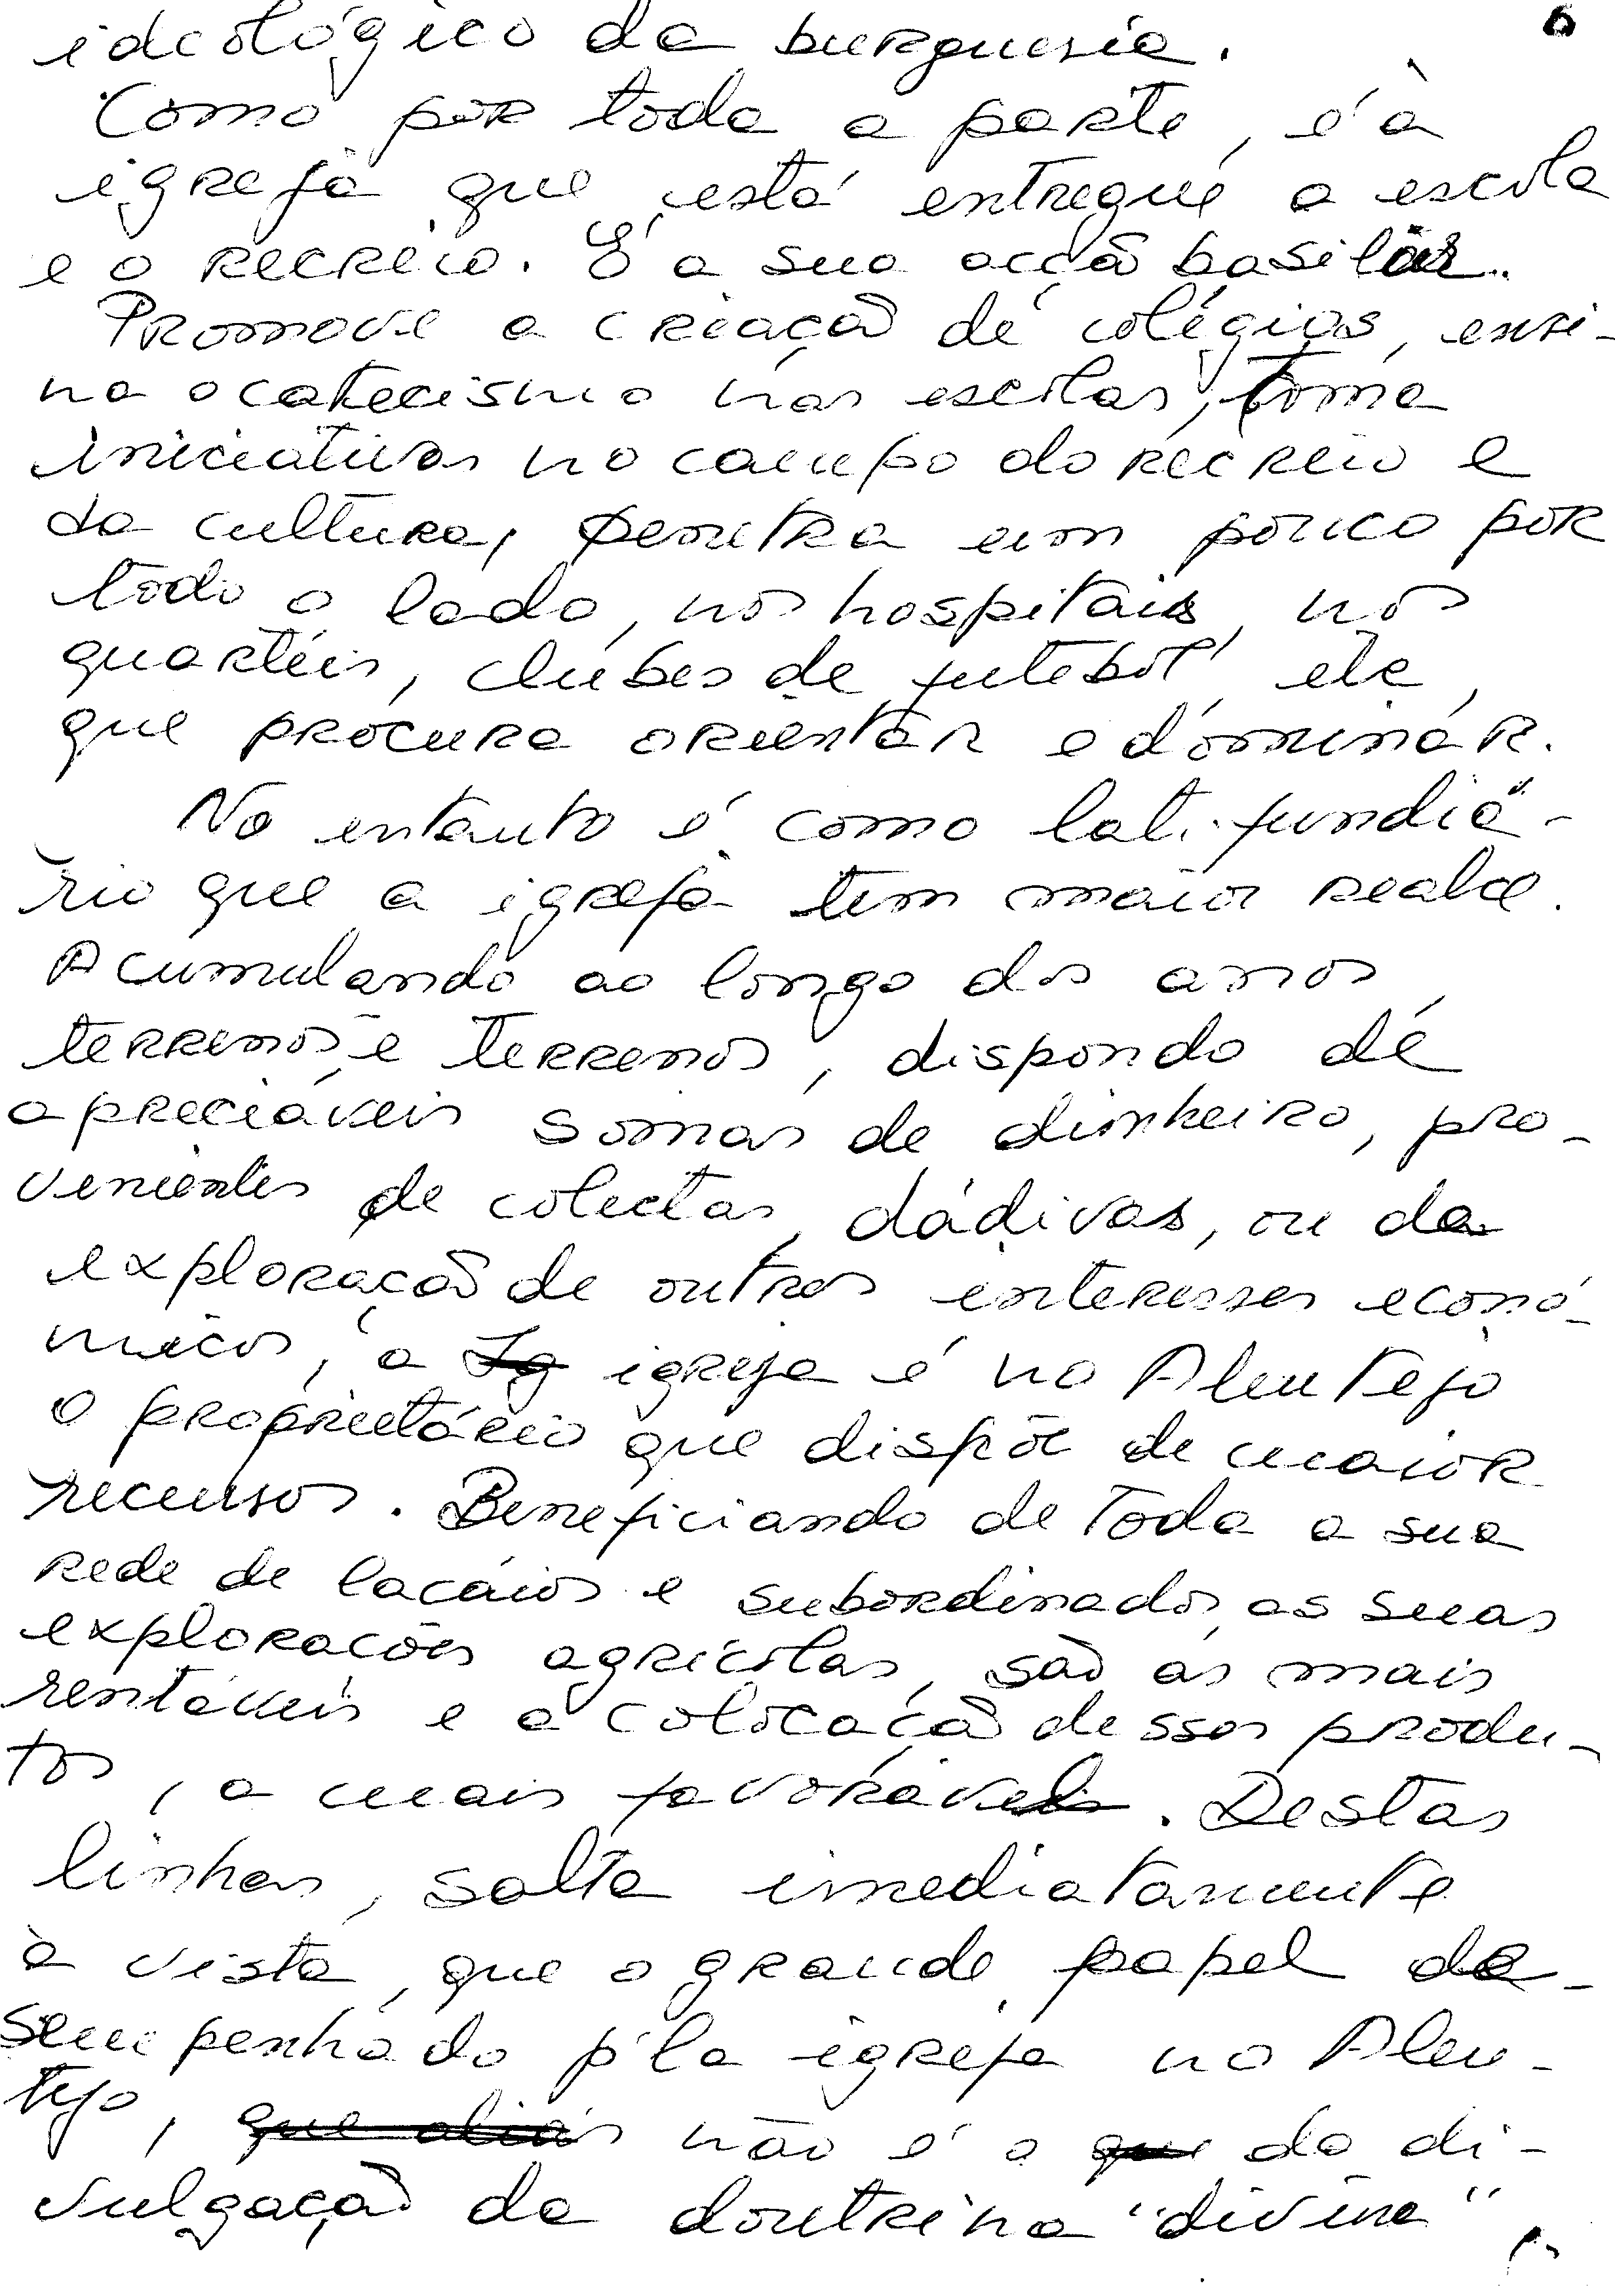 6
ideológico da burguesia.
Como por toda a parte, é à
igreja que está entregue a escola
e o recreio. É a sua acção basilar.
Promove a criação de colégios, ensi-
na o catecismo nas escolas, toma
iniciativas no campo do recreio e
da cultura, penetra em pouco por
todo o lado, nos hospitais, nos
quartéis, clubes de futebol, etc,
que procura orientar e dominar.
No entanto é como lati-fundiá-
rio que a igreja tem maior realce.
Acumulando ao longo dos anos,
terrenos e terrenos, dispondo de
apreciáveis somas de dinheiro, pro-
venientes de colectas, dádivas, ou da
exploração de outros interesses econó-
micos, a Ig igreja é no Alentejo
o proprietário que dispõe de maior
recursos. Beneficiando de toda a sua
rede de lacaios e subordinados, as suas
explorações agrícolas, são as mais
rentáveis e a colocação desses produ-
tos, a mais favorável. Destas
linhas, salta imediatamente
à vista, que o grande papel de-
sempenhado p'la igreja no Alen-
tejo, que aliás não é o que da di-
vulgação da doutrina "divina",